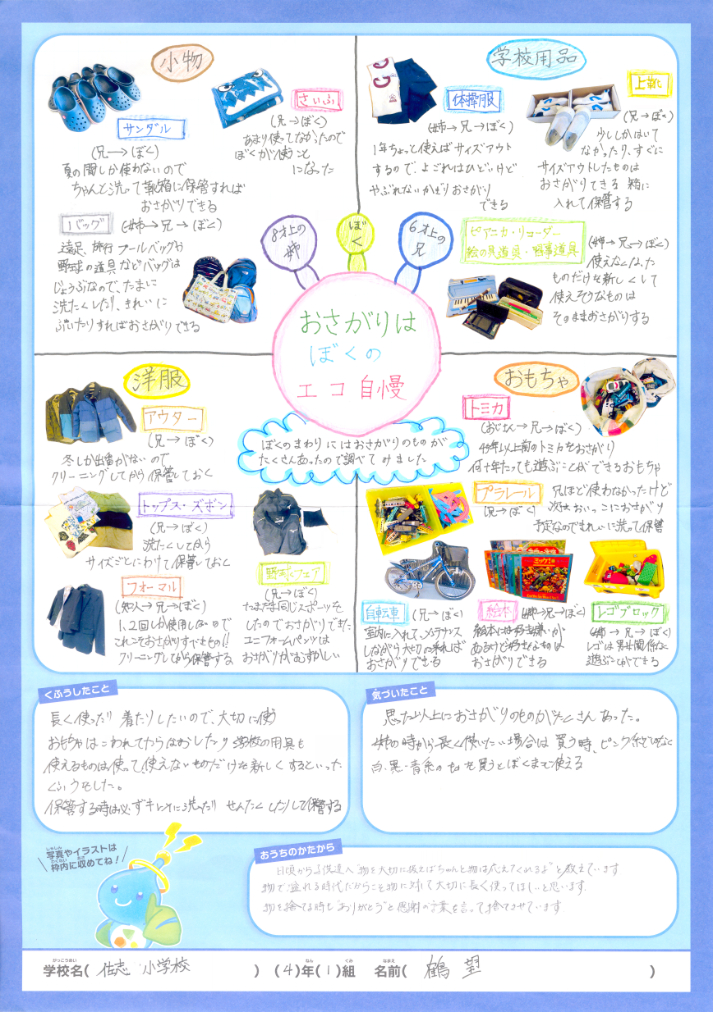 小物
サンダル
(兄→ぼく)
夏の間しか使わないので
ちゃんと洗って靴箱に保管すれば
おさがりできる
さいふ
(兄→ぼく)
あまり使ってなかったので
ぼくが使うこと
になった
バッグ
(姉→兄→ぼく)
遠足、旅行、プールバッグや
野球の道具などバッグは
じょうぶなので、たまに
洗たくしたり、きれいに
ふいたりすればおさがりできる
学校用品
体操服
(姉→兄→ぼく)
1年ちょっと使えばサイズアウト
するので、よごれはひどいけど
やぶれないかぎりおさがり
できる
上靴
(兄→ぼく)
少ししかはいて
なかったり、すぐに
サイズアウトしたものは
おさがりできる 箱に
入れて保管する
ピアニカ・リコーダー
絵の具道具・習字道具
(姉→兄→ぼく)
使えなくなった
ものだけを新しくして
使えそうなものは
そのままおさがりする
8才上の姉
ぼく
6才上の兄
おさがりは
ぼくの
エコ自慢
ぼくのまわりにはおさがりのものが
たくさんあったので調べてみました
洋服
アウター
(兄→ぼく)
冬しか出番がないので
クリーニングしてから保管しておく
トップス・ズボン
(兄→ぼく)
洗たくしてから
サイズごとにわけて保管しておく
フォーマル
(兄→ぼく)
1、2回しか使用しないので
これこそおさがりすべきもの!!
クリーニングしてから保管する
野球ウェア
(兄→ぼく)
たまたま同じスポーツを
したのでおさがりできた
ユニフォームパンツは
おさがりがむずかしい
おもちゃ
トミカ
(おじさん→兄→ぼく)
40年以上前のトミカをおさがり
何十年たっても遊ぶことができるおもちゃ
プラレール
(兄→ぼく)
兄ほど使わなかったけど
次はおいっこにおさがり
予定なのできれいに洗って保管
自転車
(兄→ぼく)
室内に入れて、メンテナンス
しながら大切に乗れば
おさがりできる
絵本
(姉→兄→ぼく)
絵本には好き嫌いが
あるけど好きなものは
おさがりできる
レゴブロック
(姉→兄→ぼく)
レゴは男女関係なく
遊ぶことができる
くふうしたこと
長く使ったり 着たりしたいので、大切に使う
おもちゃはこわれてたらなおしたり 学校の用具も
使えるものは使って使えないものだけを新しくするといった
くふうをした。
保管する時は必ずキレイに洗ったり せんたくしたりして保管する
気づいたこと
思った以上におさがりのものがたくさんあった。
姉の時から長く使いたい場合は買う時、ピンク系ではなく
白・黒・青系のものを買うとぼくまで使える
写真やイラストは
枠内に収めてね!
おうちのかたから
日頃から子供達へ物を大切に扱えばちゃんと物は応えてくれるよと教えています
物で溢れる時代だからこそ物に対して大切に長く使ってほしいと思います
物を捨てる時も"ありがとう"と感謝の言葉を言って捨てさせています
学校名( 佐志 小学校 ) (4)年(1)組 名前( 鶴 望 )